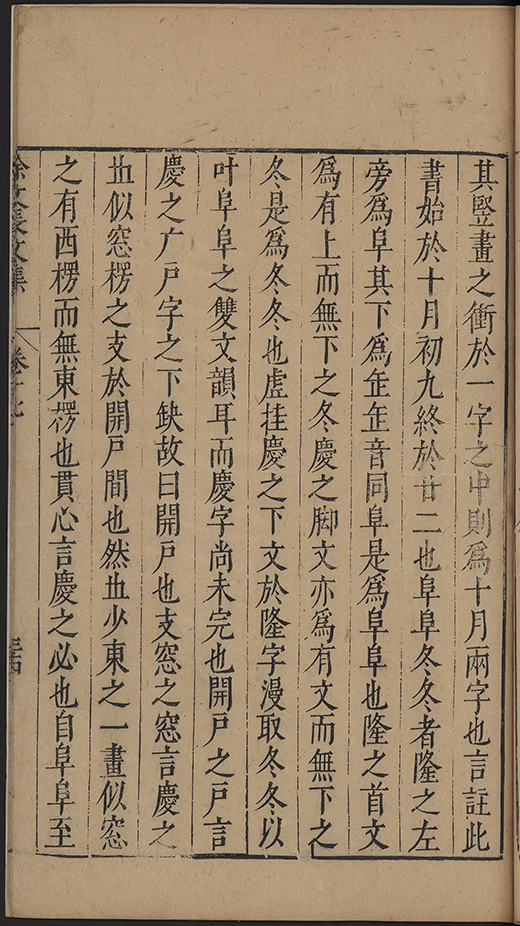 其豎畫之衝於一字之中則爲十月兩字也言註此
書始於十月初九終於廿二也阜阜冬冬者隆之左
旁爲阜其下爲缶缶音同阜是爲阜阜也隆之首文
爲有上而無下之冬慶之脚文亦爲有文而無下之
冬是爲冬冬也虛挂慶之下文於隆字漫取冬冬以
叶阜阜之雙文韻耳而慶字尚未完也開戸之戸言
慶之广戸字之下缺故曰開戸也支窓之窓言慶之
丗似窓楞之支於開戸間也然丗少東之一畫似窓
之有西楞而無東楞也貫心言慶之必也自阜阜至
徐文長文集 卷十七